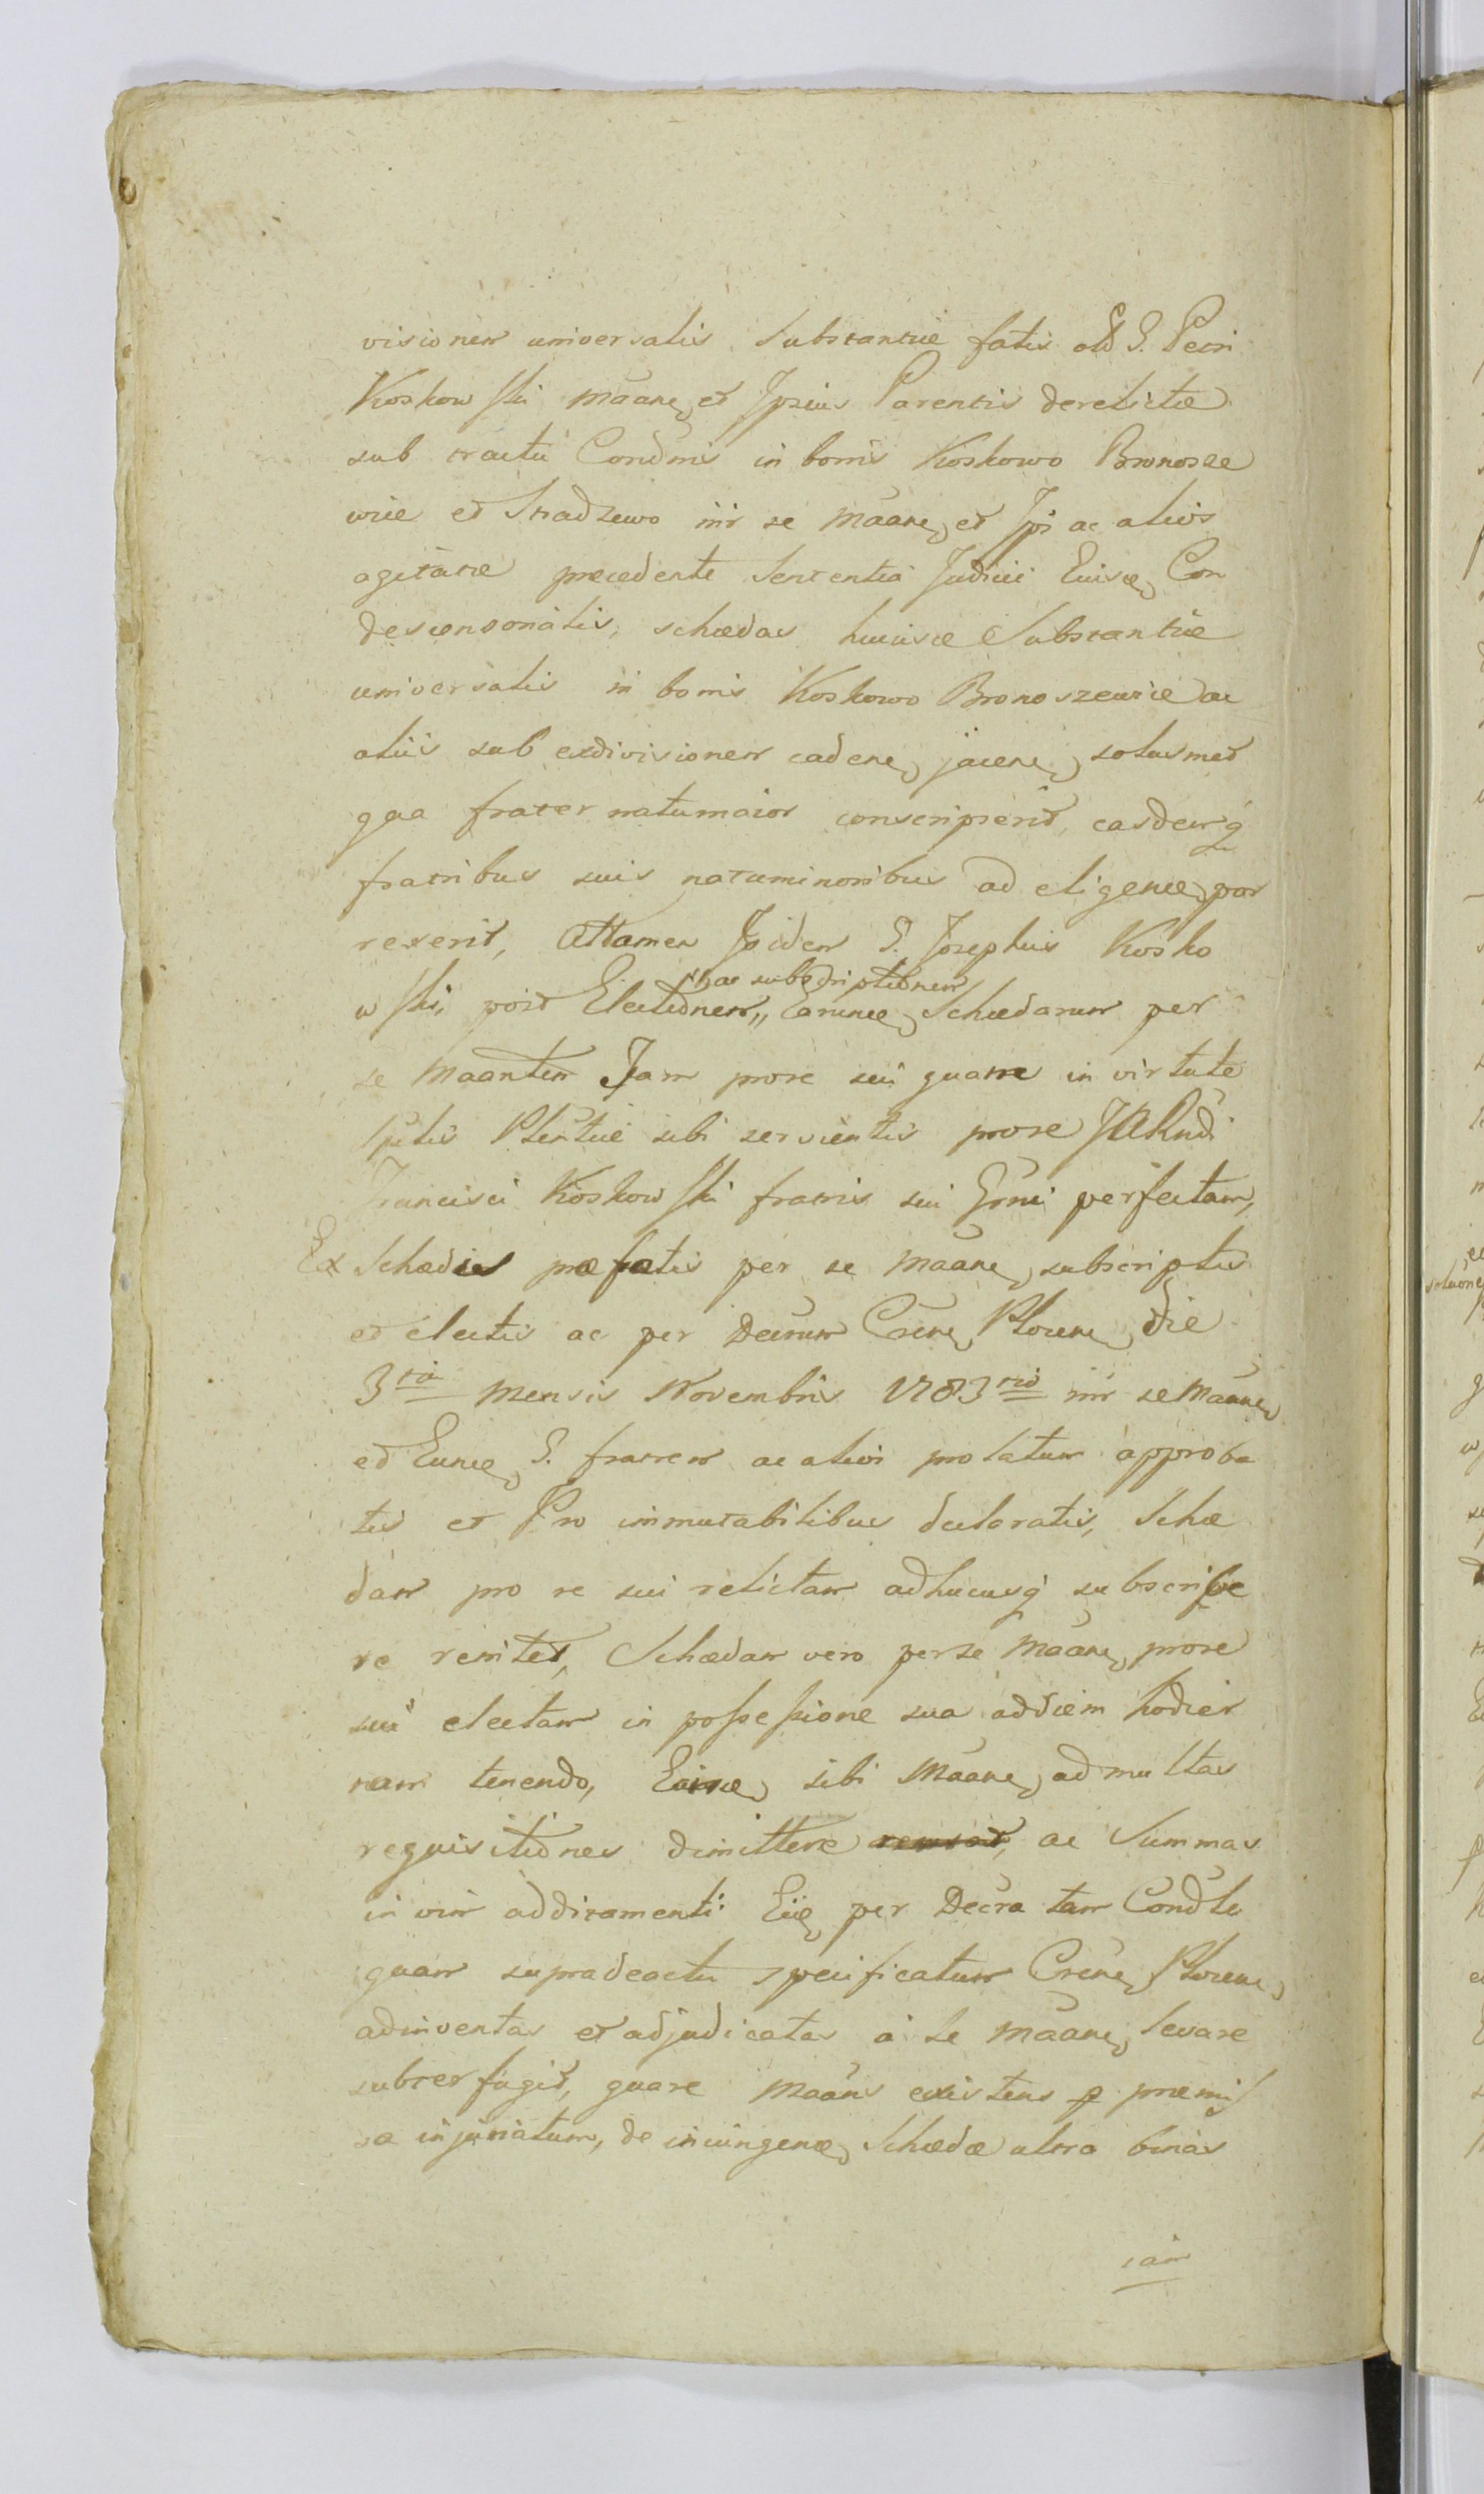 visionem universalis Substantiæ fatis olim G. Petri
Koskowski Maane, et Ipsius Parentis derelictæ
sub tractu Condnis in bonis Koskowo Bronosze
wice et Stradzewo intr se Maane, et Ipi ac alios
agitatæ præcedente Sententia Judicii Eiusce, Con
descensionalis, schædas huiusce Substantiæ
universalis in bonis Koskowo Bronoszewice ac
aliis sub exdivisionem cadene, jacene, solusmet
qaa frater natumaior conscripserit, easdemq
fratribus suis natuminoribus ad eligene, por
rexerit, Attamen Isidem G. Josephus Kosko
wski, post Electionem,, Earunce, Schædarum per
"ac subscriptionem
se Maantem Jam prore sui quam in virtute
Plentiæ sibi servientis prore
Francisci Koskowski fratris sui Grni perfectam,
Ex Schædis præfatis per se Maane, subscriptis
et electis ac per Decrum Crene, Plocene, die
3tia Mensis Novembris 1783tio intr se Maane,
et Eunce, G. fratrem ac alios prolatum approba
tis et Pro immutabilibus declaratis, Schæ
dam pro re sui relictam adhucusq subscribe
re renitet, Schædam vero perse Maane, prore
sui electam in possessione sua addiem hodier
nam tenendo, sibi Maane, ad multas
requisitiones dimittere ac Summas
in vim additamenti per Decra tam Condle
quam supradeactu specificatum Crene, Plocene,
adinventas et adjudicatas a se Maane, levare
subterfugit, quare Maans existens p præmis
sa injuriatum, de incumgene, Schædæ ultra binas
iam